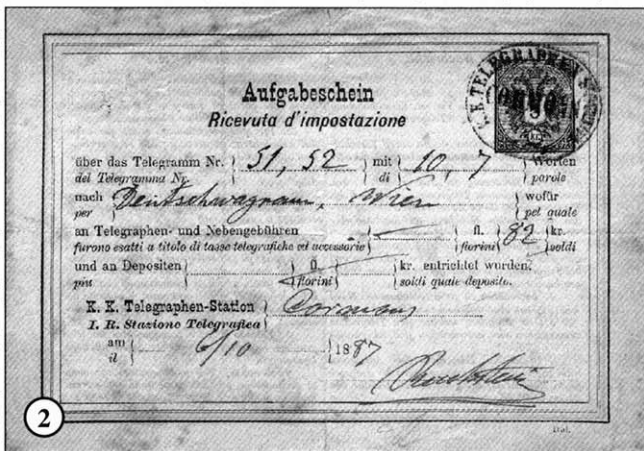 K.K. TELEGRAPHEN
Aufgabeschein
Ricevuta d'impostazione
über das Telegramm Nr. 51, 52 mit 10, 7 Worten
del Telegramma Nr. di parole
nach Deutschwagram, Wien wofür
per pel quale
an Telegraphen- und Nebengebühren fl. 82 kr.
furono esatti a titolo di tasse telegrafiche ed accessorie fiorini soldi
und an Depositen fl. kr. entrichtet wurden.
più fiorini soldi quale deposito.
K. K. Telegraphen-Station Cormons
I. R. Stazione Telegrafica
am 6/10 1887
il
2
Ital.